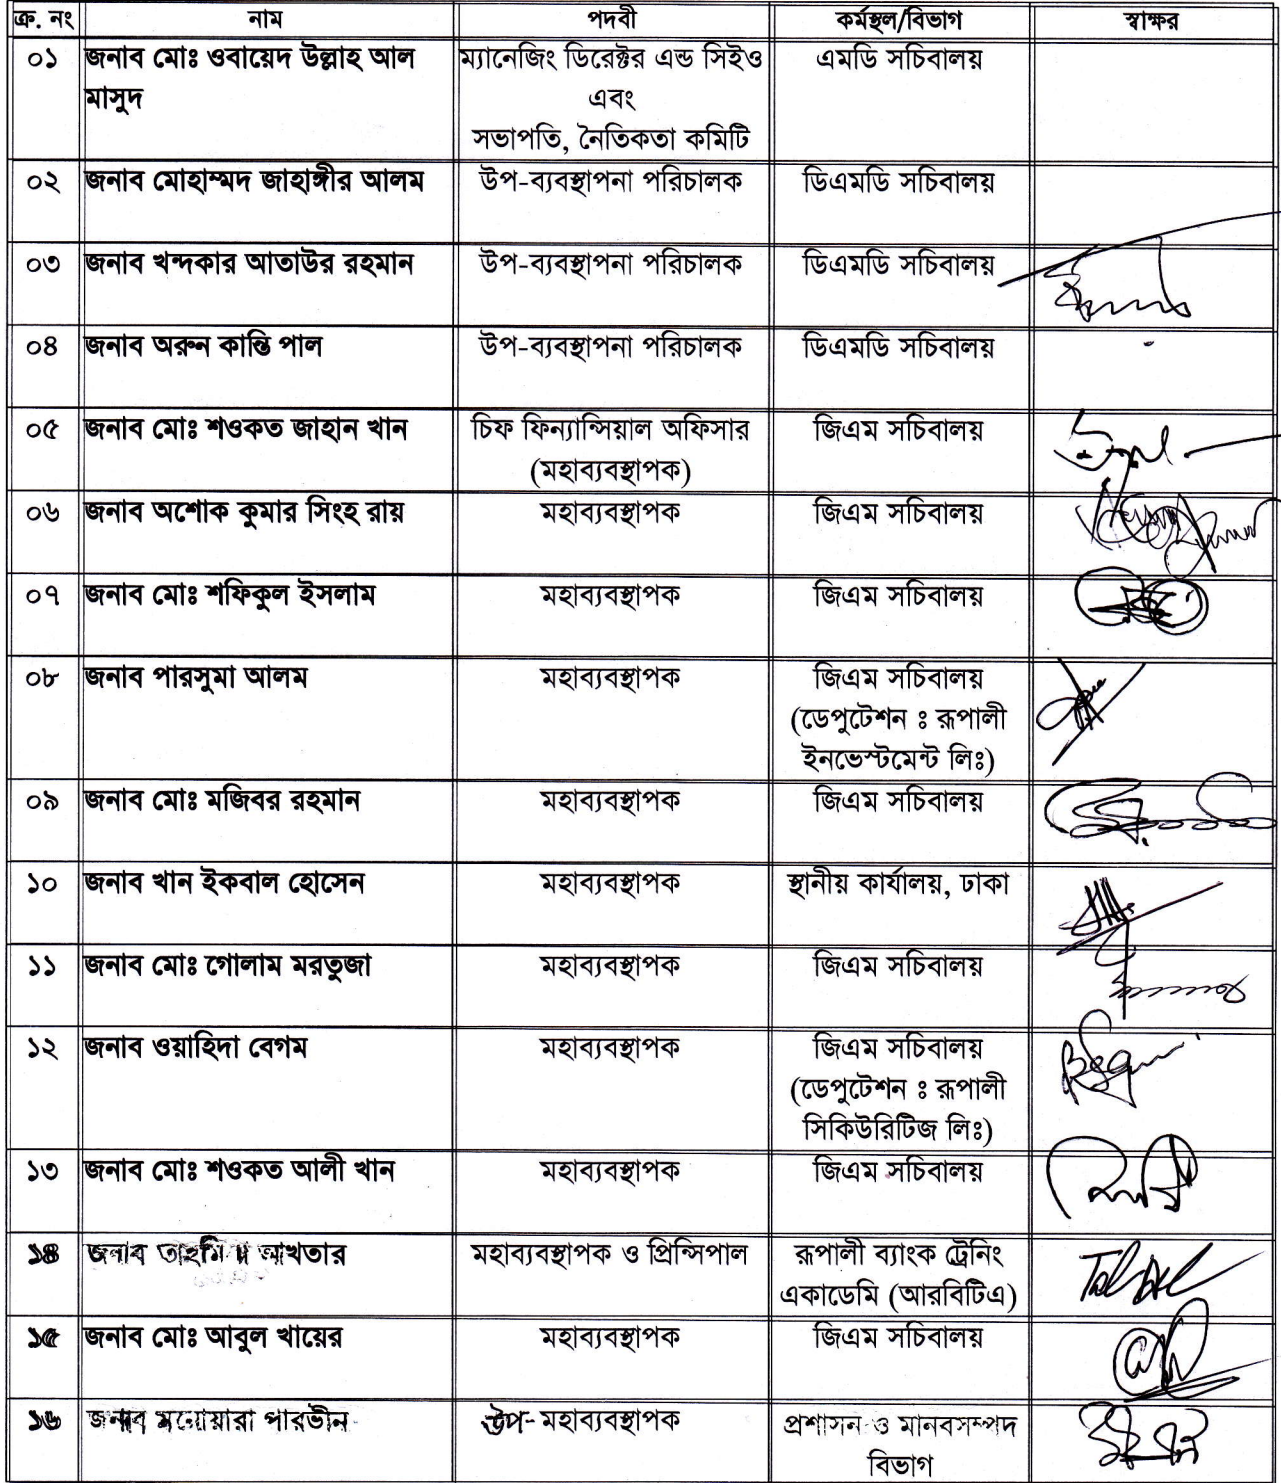 ক্র. নং নাম পদবী কর্মস্থল/বিভাগ স্বাক্ষর
০১ জনাব মোঃ ওবায়েদ উল্লাহ আল ম্যানেজিং ডিরেক্টর এন্ড সিইও এমডি সচিবালয়
মাসুদ এবং
সভাপতি, নৈতিকতা কমিটি
০২ জনাব মোহাম্মদ জাহাঙ্গীর আলম উপ-ব্যবস্থাপনা পরিচালক ডিএমডি সচিবালয়
০৩ জনাব খন্দকার আতাউর রহমান উপ-ব্যবস্থাপনা পরিচালক ডিএমডি সচিবালয়
০৪ জনাব অরুন কান্তি পাল উপ-ব্যবস্থাপনা পরিচালক ডিএমডি সচিবালয়
০৫ জনাব মোঃ শওকত জাহান খান চিফ ফিন্যান্সিয়াল অফিসার জিএম সচিবালয়
(মহাব্যবস্থাপক)
০৬ জনাব অশোক কুমার সিংহ রায় মহাব্যবস্থাপক জিএম সচিবালয়
০৭ জনাব মোঃ শফিকুল ইসলাম মহাব্যবস্থাপক জিএম সচিবালয়
০৮ জনাব পারসুমা আলম মহাব্যবস্থাপক জিএম সচিবালয়
(ডেপুটেশন ঃ রূপালী
ইনভেস্টমেন্ট লিঃ)
০৯ জনাব মোঃ মজিবর রহমান মহাব্যবস্থাপক জিএম সচিবালয়
১০ জনাব খান ইকবাল হোসেন মহাব্যবস্থাপক স্থানীয় কার্যালয়, ঢাকা
১১ জনাব মোঃ গোলাম মরতুজা মহাব্যবস্থাপক জিএম সচিবালয়
১২ জনাব ওয়াহিদা বেগম মহাব্যবস্থাপক জিএম সচিবালয়
(ডেপুটেশন ঃ রূপালী
সিকিউরিটিজ লিঃ)
১৩ জনাব মোঃ শওকত আলী খান মহাব্যবস্থাপক জিএম সচিবালয়
১৪ জনাব আখতার মহাব্যবস্থাপক ও প্রিন্সিপাল রূপালী ব্যাংক ট্রেনিং
একাডেমি (আরবিটিএ)
১৫ জনাব মোঃ আবুল খায়ের মহাব্যবস্থাপক জিএম সচিবালয়
১৬ জনাব মনোয়ারা পারভীন উপ-মহাব্যবস্থাপক প্রশাসন ও মানবসম্পদ
বিভাগ